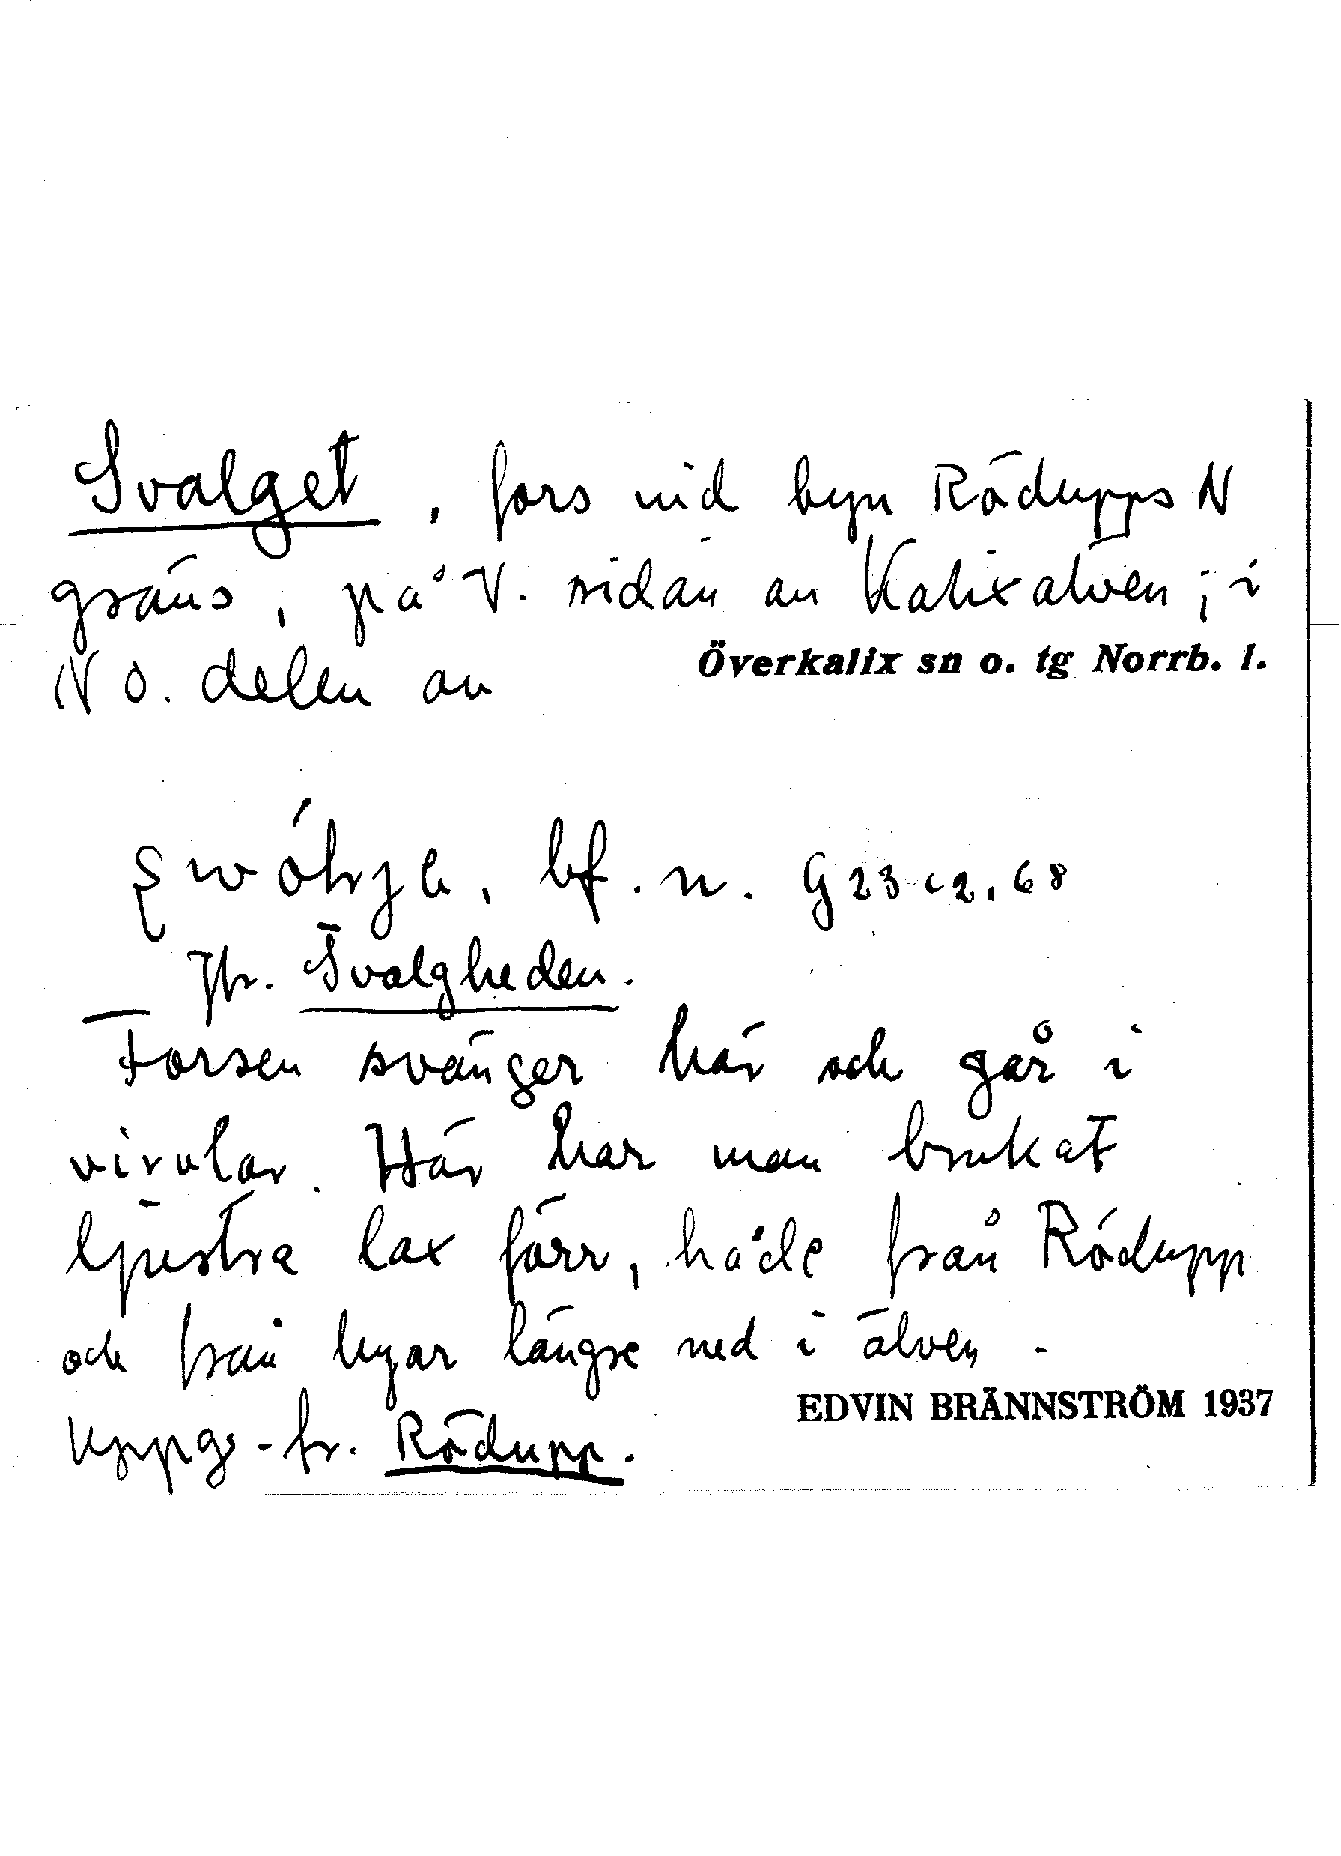 Svalget, fors vid byn Rödupps N
gräns, på V. sidan av Kalixälven; i
NO. delen av
Överkalix sn o. tg Norrb. l.
bf. n. G 23 c 2. 68
Jfr. Svalgheden.
Forsen svänger här och går i
virvlar. Här har man brukat
ljustra lax förr, både från Rödupp
och från byar längre ned i älven.
EDVIN BRÄNNSTRÖM 1937
Uppg. fr. Rödupp.